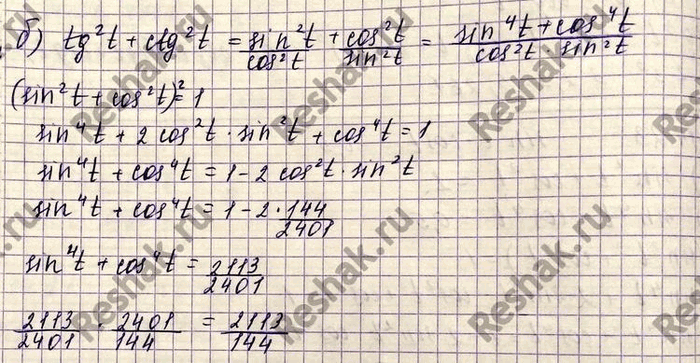 б) tg²t + ctg²t = sin²t/cos²t + cos²t/sin²t = (sin⁴t + cos⁴t)/(cos²t sin²t)
(sin²t + cos²t)² = 1
sin⁴t + 2 cos²t · sin²t + cos⁴t = 1
sin⁴t + cos⁴t = 1 - 2 cos²t · sin²t
sin⁴t + cos⁴t = 1 - 2 · 144/2401
sin⁴t + cos⁴t = 2113/2401
2113/2401 · 2401/144 = 2113/144
Reshak.ru
Reshak.ru
Reshak.ru
Reshak.ru
Reshak.ru